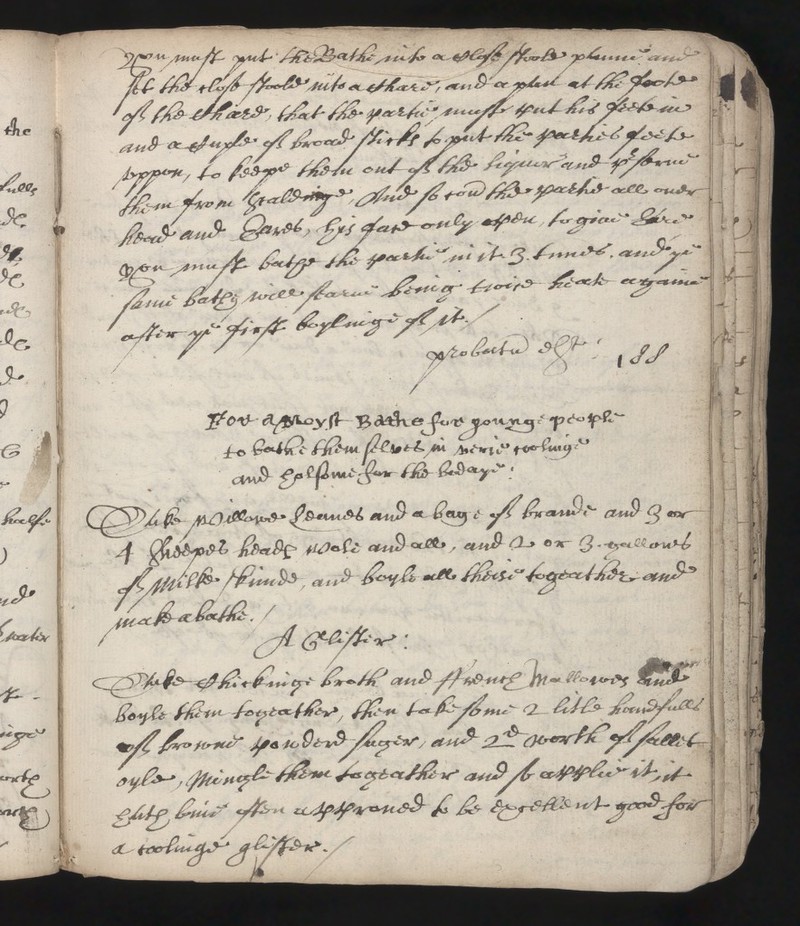 the
fulls
halfe
water
you must put the Bathe into a close stoole panne, and
set the close stoole into a chare, and a pan at the foote
of the chare, that the partie must put his feete in
and a cuple of broad sticks to put the parties feete
uppon, to keepe them out of the liquor and
them from scaldinge, And so the partie all over
head and eares, his face only open, to give
you must bathe the partie in it 3 times. and ye
same bathe will serve being twice heate againe
after ye first boylinge of it./
probatu est: 188
For a Moyst Bathe for younge people
to bathe them selves in verie coolinge
and holsome for the bodaye:
Take Willowe leaves and a bage of brande and 3 or
4 sheepes heads wole and all, and 2 or 3 gallons
of milke skimde, and boyle all theise togeather and
make a bathe./
A Glister:
Take Chickinge broth and ffrench Mallowes and
boyle them togeather, then take some 2 litle handfulls
of browne pouderd suger, and 2d worth of sallet
oyle, Mingle them togeather and so applie it, it
hath bine often approved to be excellent good for
a coolinge glister./